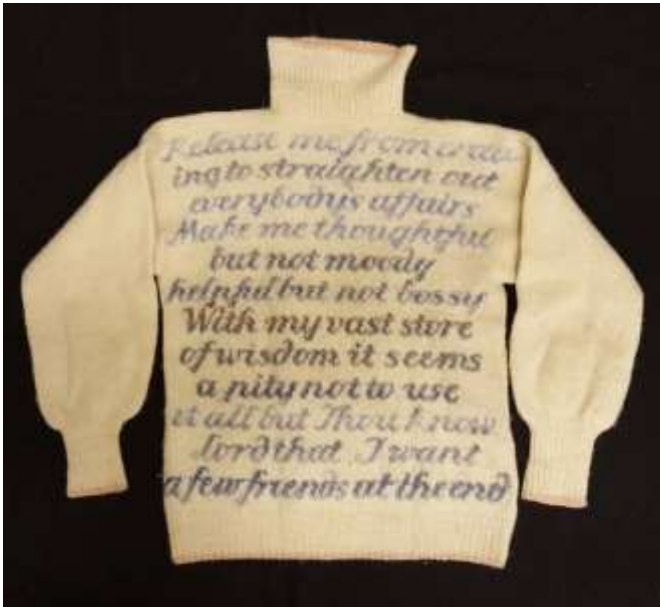 Release me from crav
ing to straighten out
everybodys affairs
Make me thoughtful
but not moody
helpful but not bossy
With my vast store
of wisdom it seems
a pity not to use
it all but Thou know
lord that I want
a few friends at the end